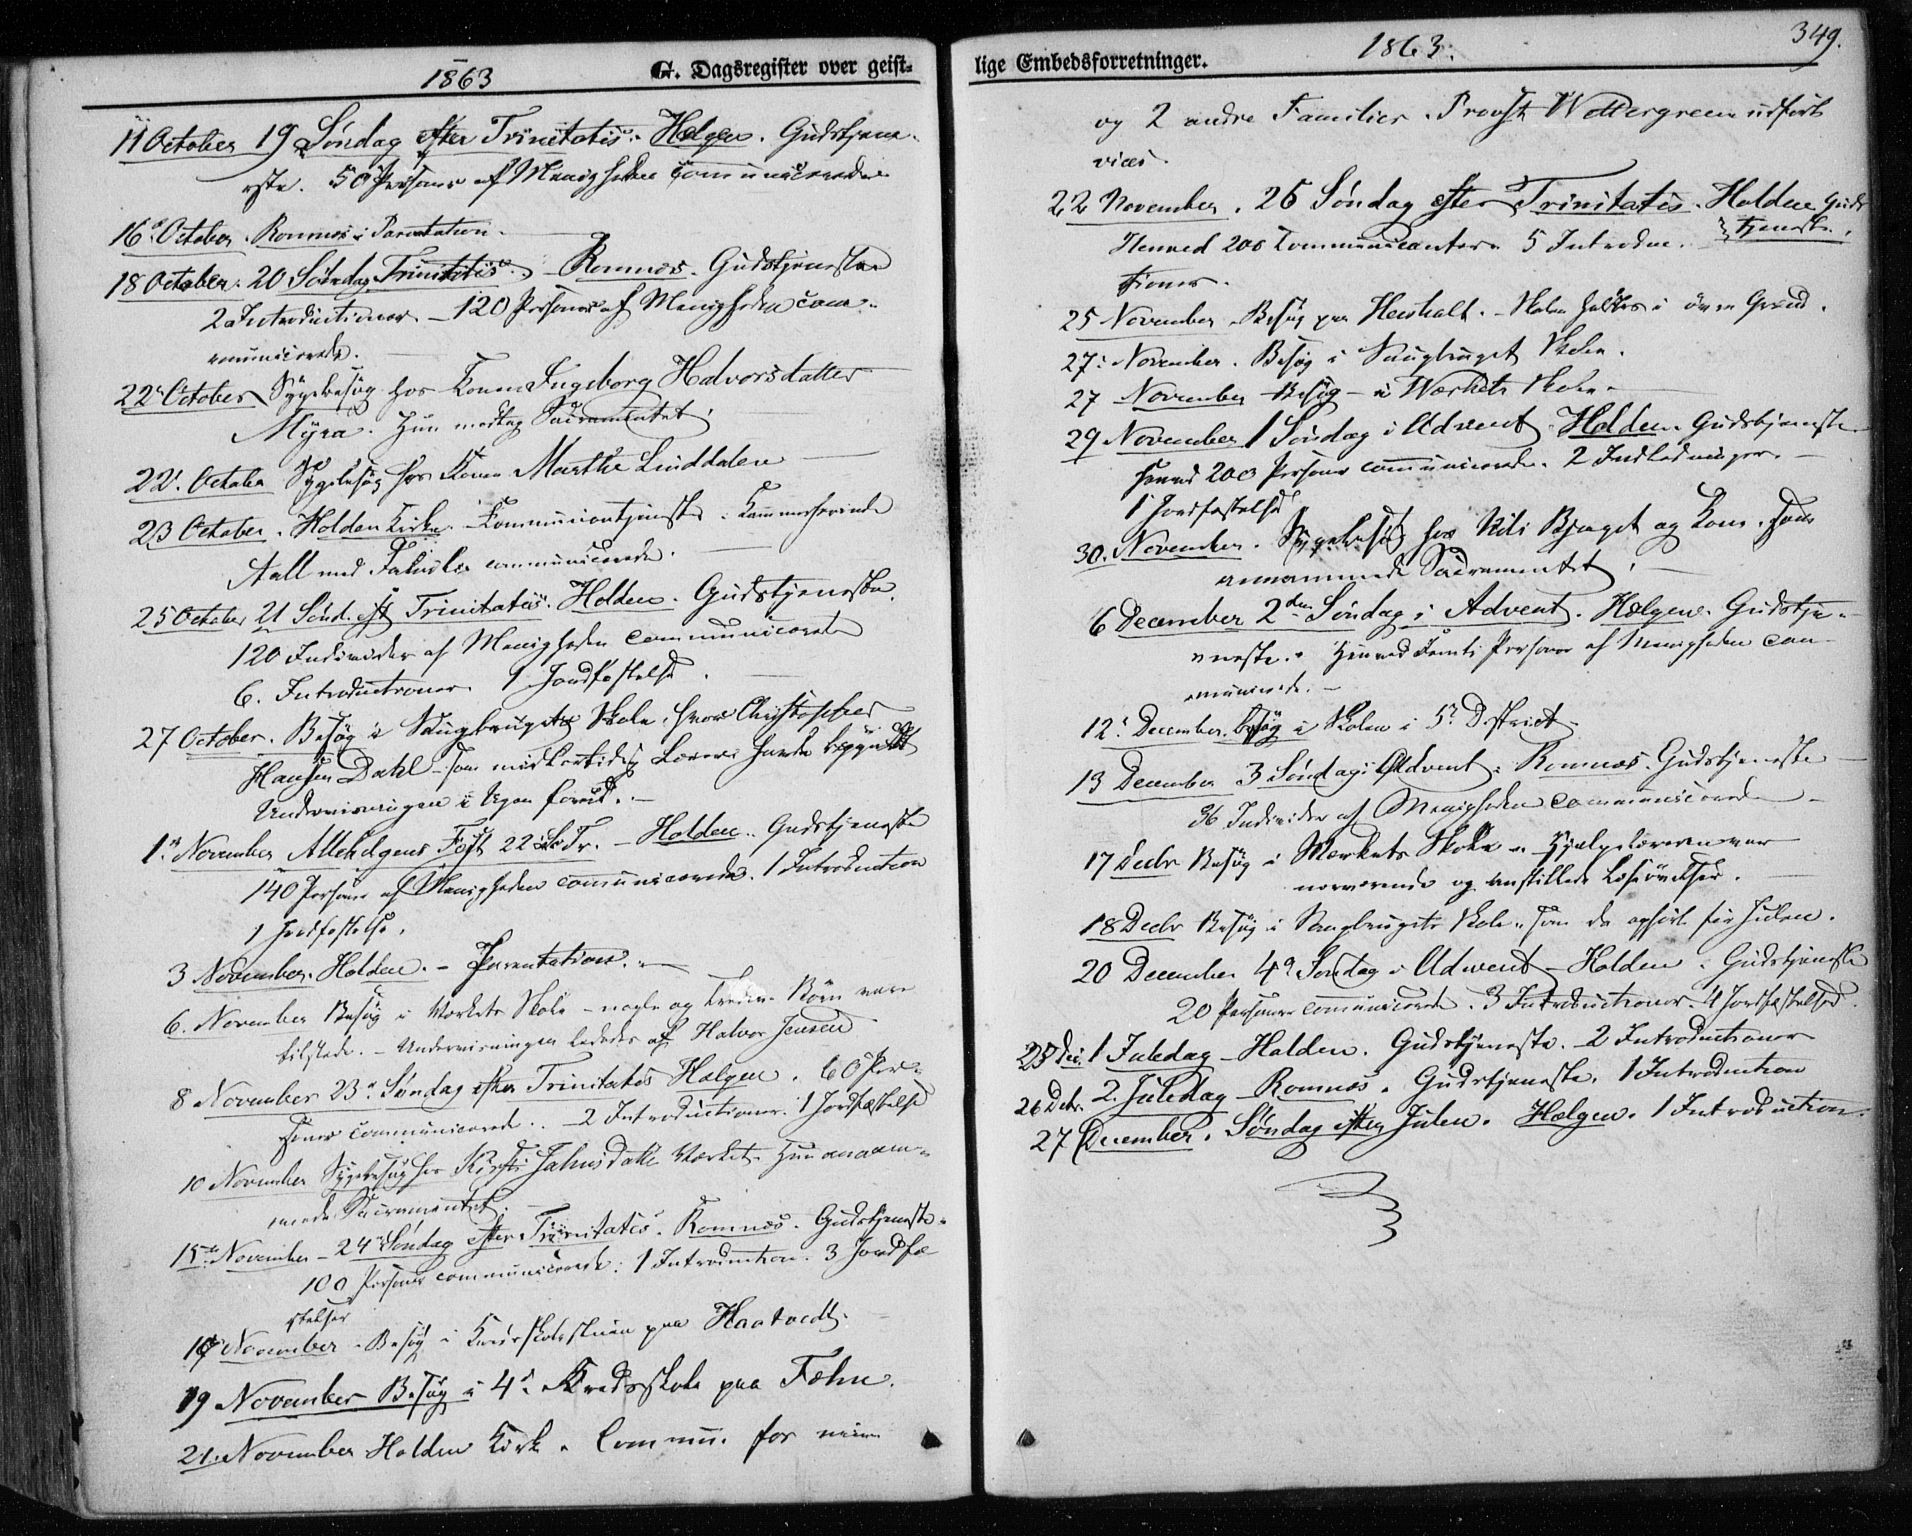 1863
G. Dagsregister over geist-
11 October 19 Søndag efter Trinitatis. Helgen. Gudstjene-
ste. 50 Personer af Menigheden communicerede
16 October. Romnes. Parentation.
18 October. 20 Søndag Trinitatis. Romnes. Gudstjeneste
2 Introductioner. 120 Personer af Menigheden com-
municerede.
22 October Sygebesøg hos Konen Ingeborg Halvorsdatter
Myra. Hun modtog Sacramentet.
22. October Sygebesøg hos Konen Marthe Linddalen
23 October. Holden Kirke. Communiontjeneste. Kammerherinde
Aall med Familie communicerede.
25 October 21 Sønd. eft Trinitatis. Holden. Gudstjeneste.
120 Individer af Menigheden communicerede
6. Introductioner. 1 Jordfæstelse.
27 October. Besøg i Saugbrugets Skole, hvor Christopher
Hansen Dahl som midlertidig Lærer havde begyndt
Underviisningen i Ugen forud.
1. November Allehelgens Fest 22 S. Tr. - Holden. Gudstjeneste
140 Personer af Menigheden communicerede. 1 Introduction
1 Jordfæstelse.
3 November. Holden. - Parentation.
6. November Besøg i Værkets Skole - nogle og tredive Børn vare
tilstede. - Underviisningen lededes af Halvor Jensen
8 November 23 Søndag efter Trinitatis Helgen. 60 Per-
soner communicerede. - 2 Introductioner. 1 Jordfæstelse
10 November Sygebesøg hos Kirsti Johnsdatter Værket. Hun annam-
mede Sacramentet.
15 November - 24 Søndag efter Trinitatis. Romnes. Gudstjeneste.
100 Personer communicerede. 1 Introduction. 3 Jordfæ-
stelser
November. Besøg i Kredsskolestuen paa Haatvedt.
19 November Besøg i 4 Kredsskole paa Fæhn.
21. November Holden Kirke. Commun. for min
lige Embedsforretninger.
1863.
349.
og 2 andre Familier. Provst Wettergreen udførte
vices.
22 November. 25 Søndag efter Trinitatis. Holden Guds
tjeneste.
Henved 200 Communicanter. 5 Introduc-
tioner.
25 November Besøg paa Skolen holdtes i øvre
27. November. Besøg i Saugbruget Skole.
27 November Besøg - i Værkets Skole.
29 November 1 Søndag i Advent. Holden. Gudstjeneste
henved 200 Personer communicerede. 2 Indledninger.
1 Jordfæstelse
30. November. Sygebesøg hos Nils og Kone. Han
annammede Sacramentet.
6 December 2den Søndag i Advent. Helgen. Gudstje-
neste. Henved Femti Personer af Menigheden com-
municerede.
12. December. Besøg i Skolen i 5 District.
13 December 3 Søndag i Advent. Romnes. Gudstjeneste
36 Individer af Menigheden communicerede
17 Decbr Besøg i Værkets Skole. Hjælpelæreren var
nærværende og anstillede Læseøvelser.
18 Decbr Besøg i Saugbrugets Skole, som da ophørte før Julen.
20 December 4 Søndag i Advent - Holden. Gudstjeneste
20 Personer communicerede. 3 Introductioner. 4 Jordfæstelser.
25 Dec. 1 Juledag - Holden. Gudstjeneste. 2 Introductioner
26 Decbr. 2. Juledag - Romnes. Gudstjeneste. 1 Introduction
27 December. Søndag efter Julen. Helgen. 1 Introduction.